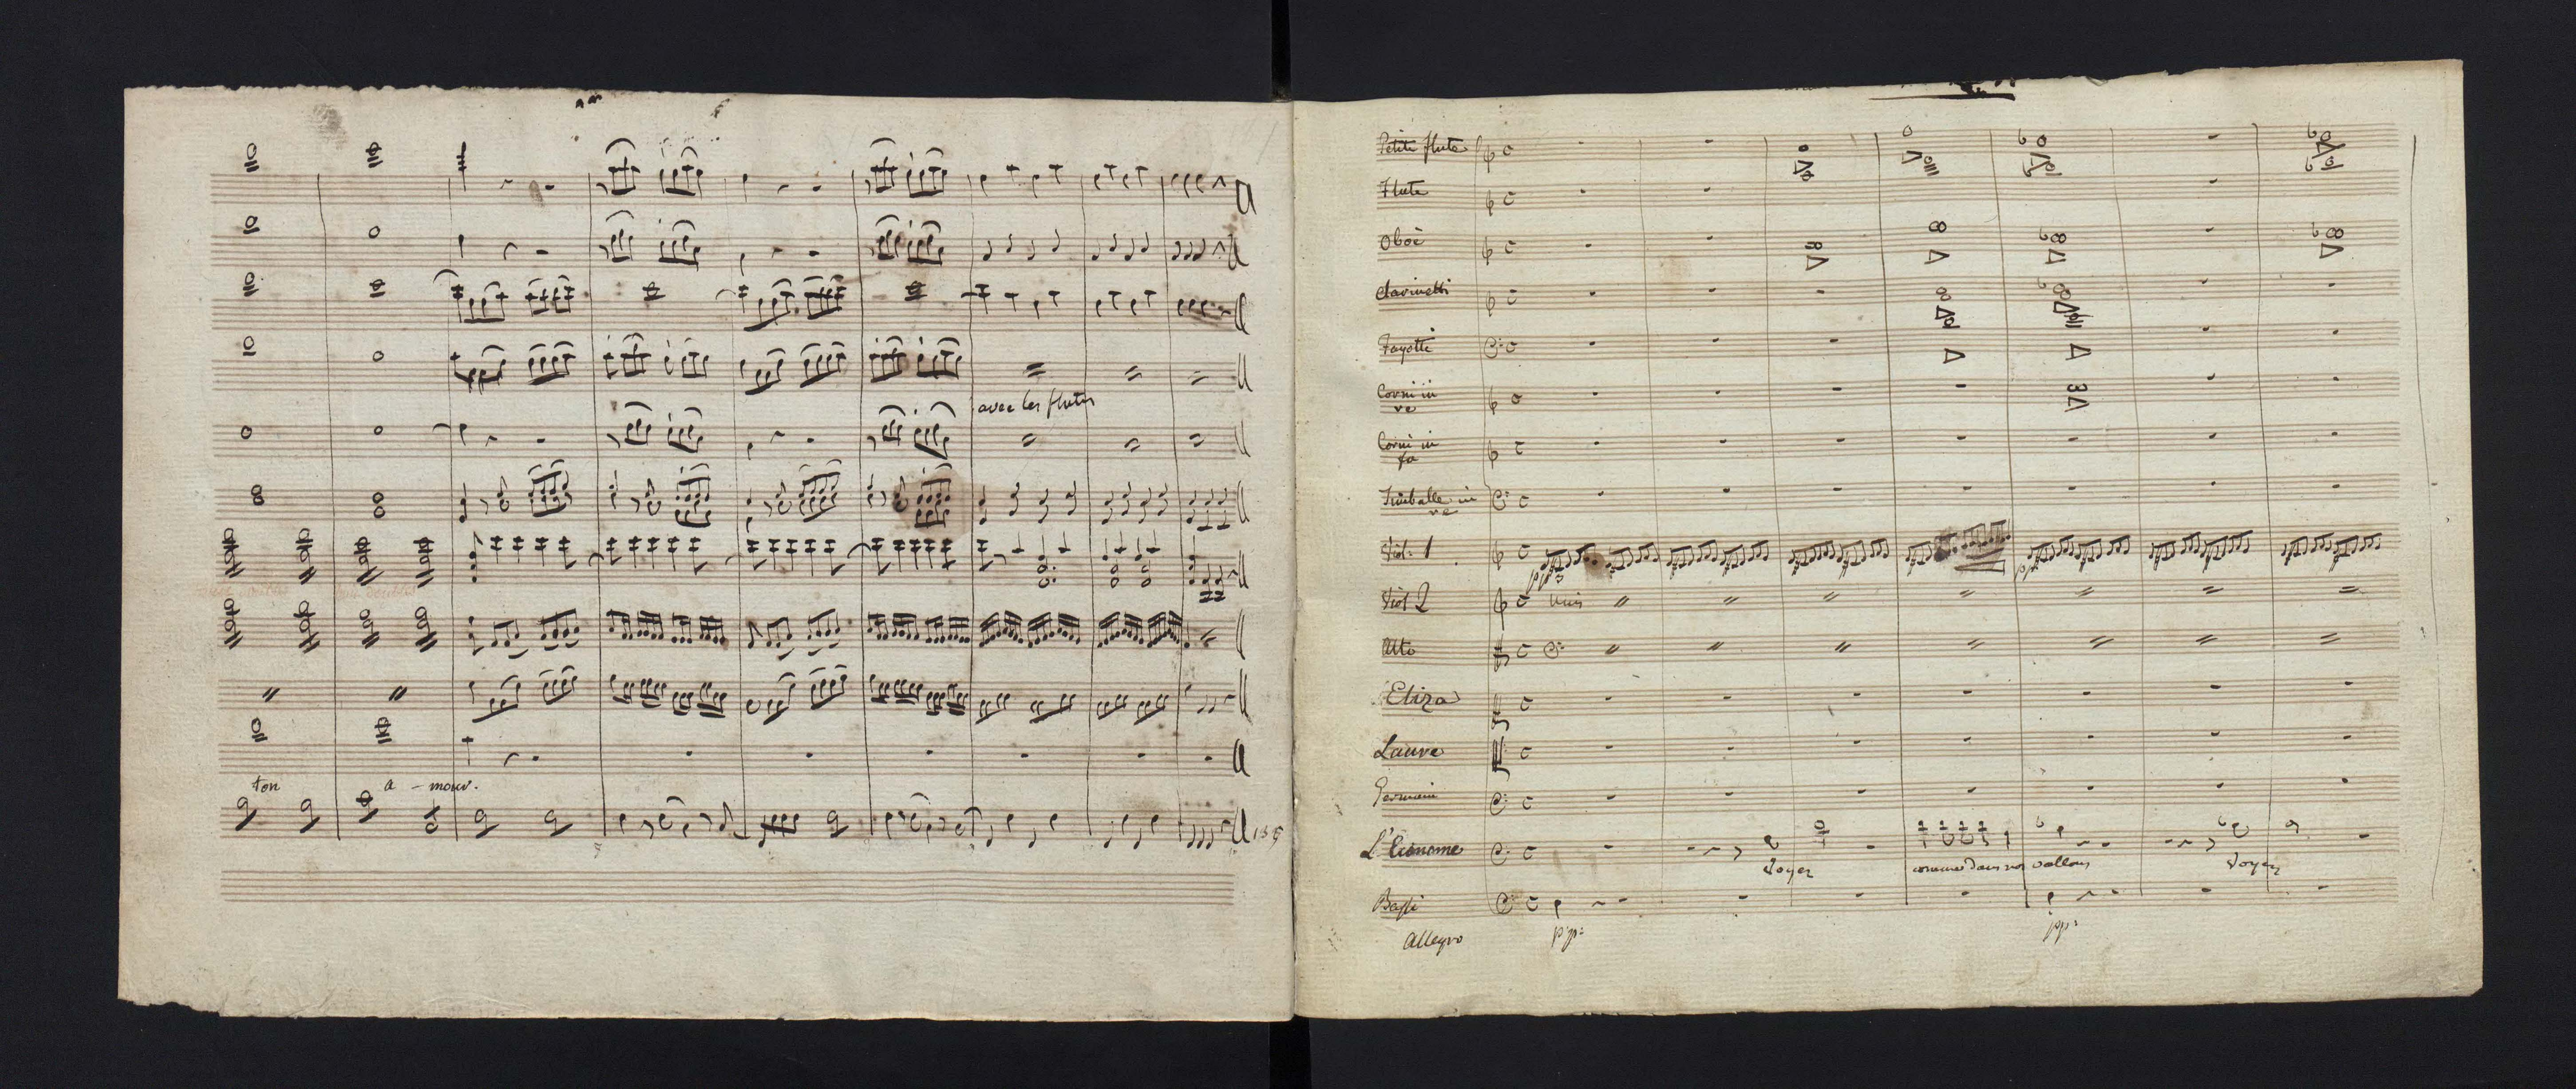 avec les flutes
ton a - mour.
Petite flute
Flute
Oboè
Clarinetti
Fagotti
Corni in
re
Corni in
fa
Timballe in
re
Viol: 1
pp
pp
Viol 2 unis
Alto
Eliza
Laure
Germain
L'Econome
Voyez comme dans nos vallons Voyez
Bassi
Allegro pp: pp: